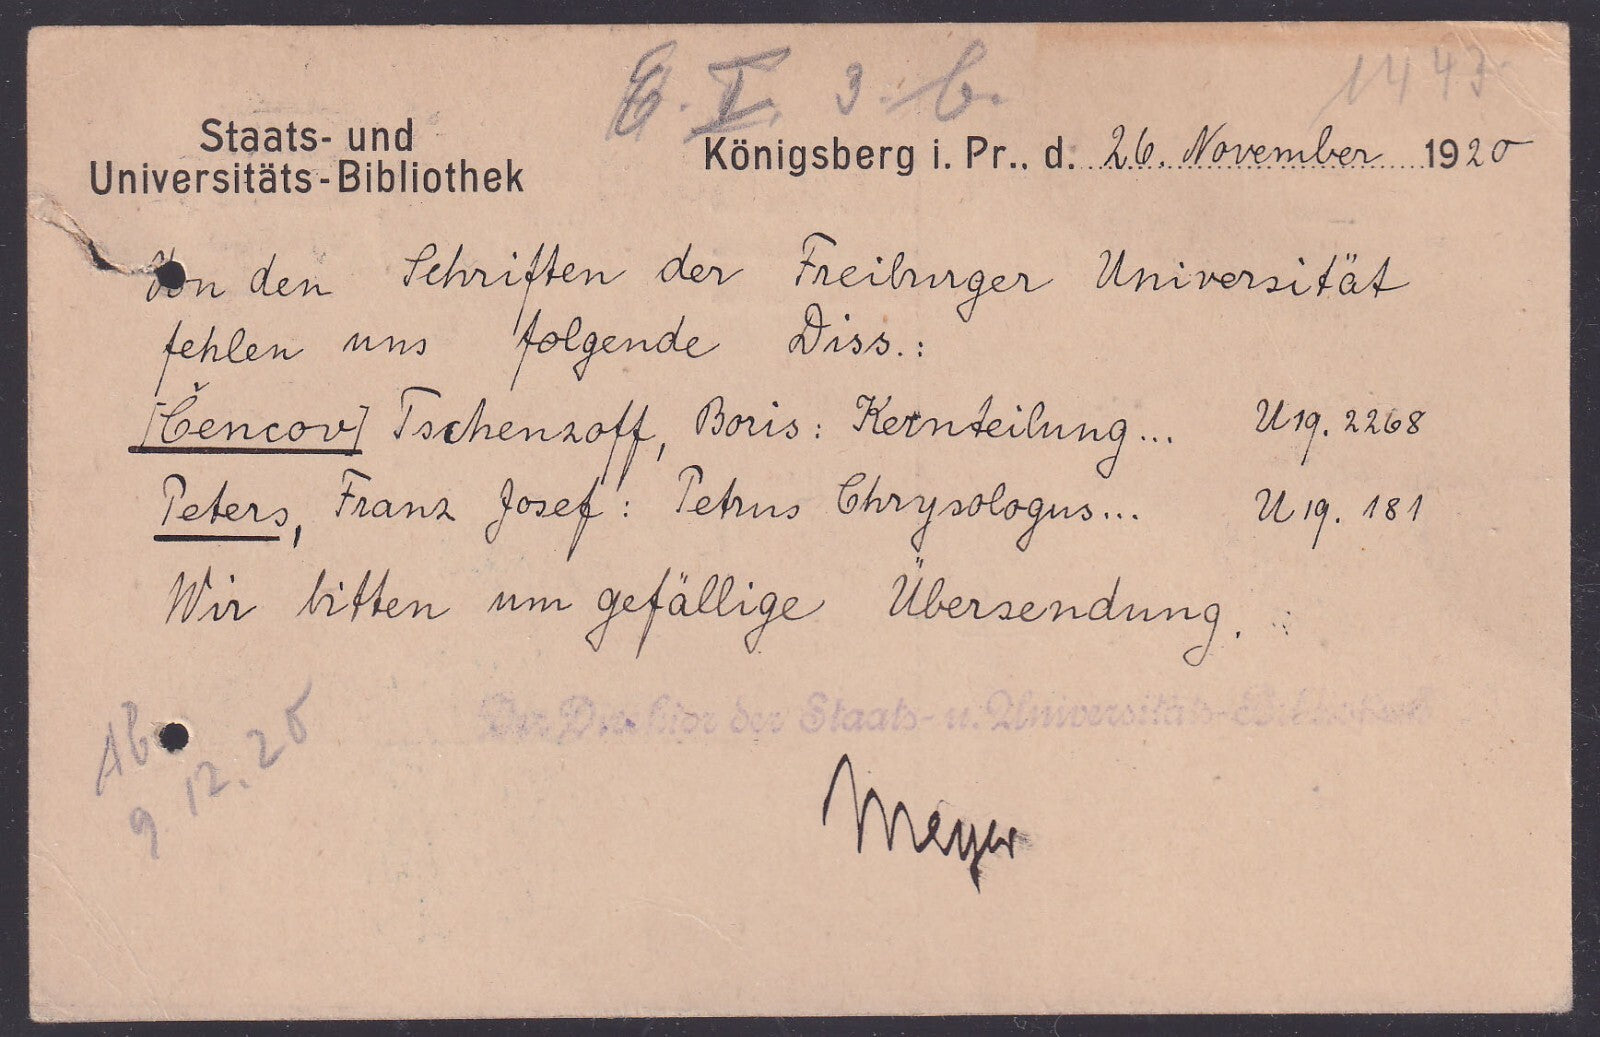 E. I. 3. b.
1447
Staats- und
Universitäts-Bibliothek
Königsberg i. Pr., d. 26. November 1920
Von den Schriften der Freiburger Universität
fehlen uns folgende Diss.:
[Čencov] Tschenzoff, Boris: Kernteilung... U 19. 2268
Peters, Franz Josef: Petrus Chrysologus... U 19. 181
Wir bitten um gefällige Übersendung.
Der Direktor der Staats- u. Universitäts-Bibliothek
Meyer
Ab
9.12.20